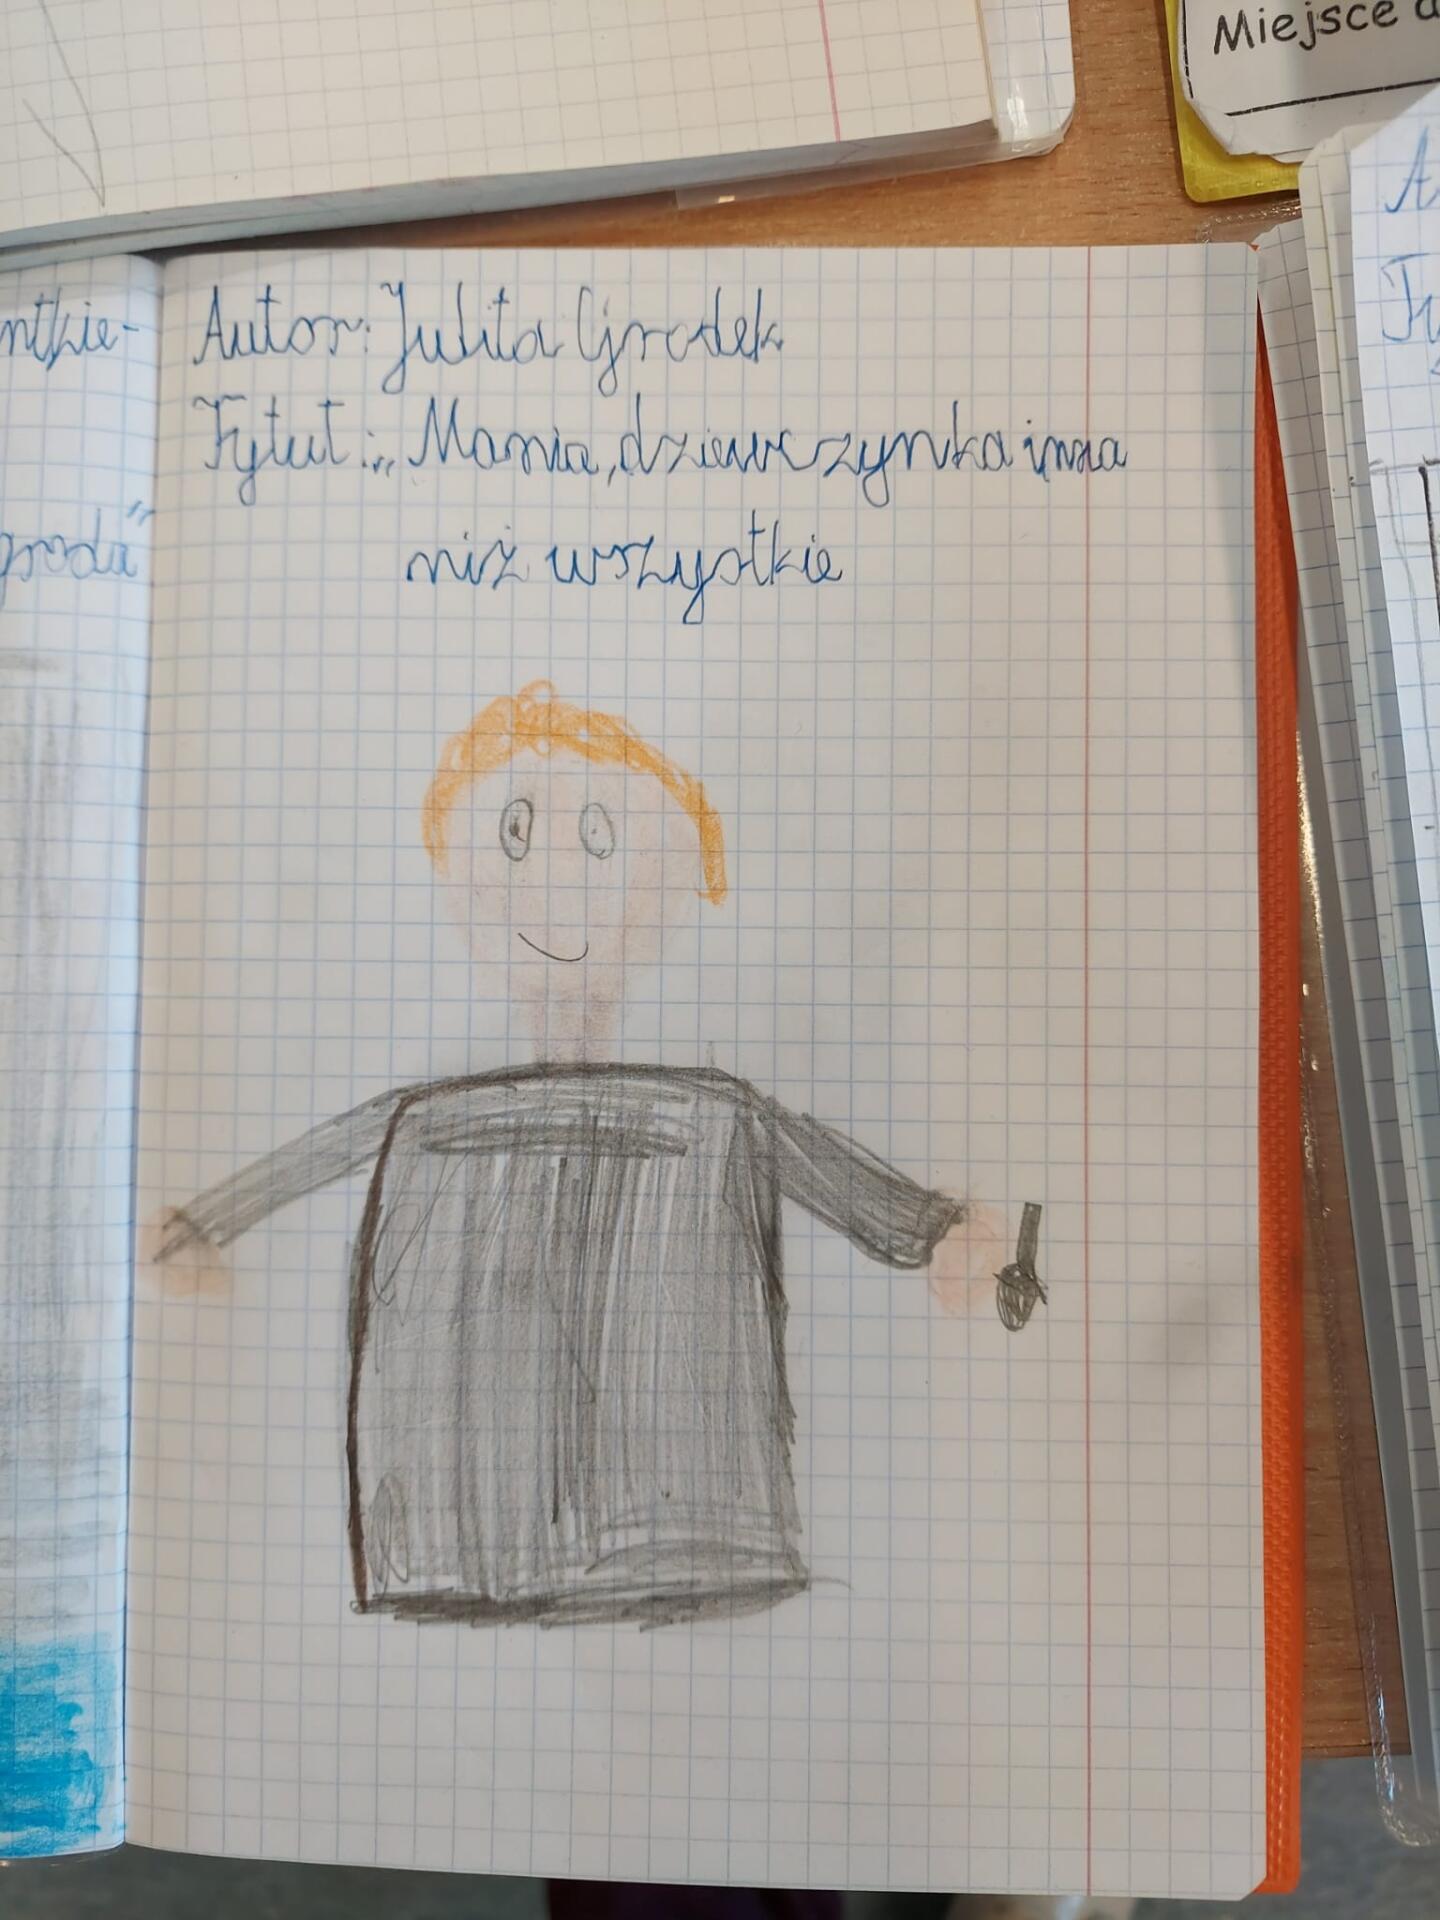 Miejsce
ntkie-
groda"
Autor: Julita Grodek
Tytuł: „Mania, dziewczynka inna
niż wszystkie